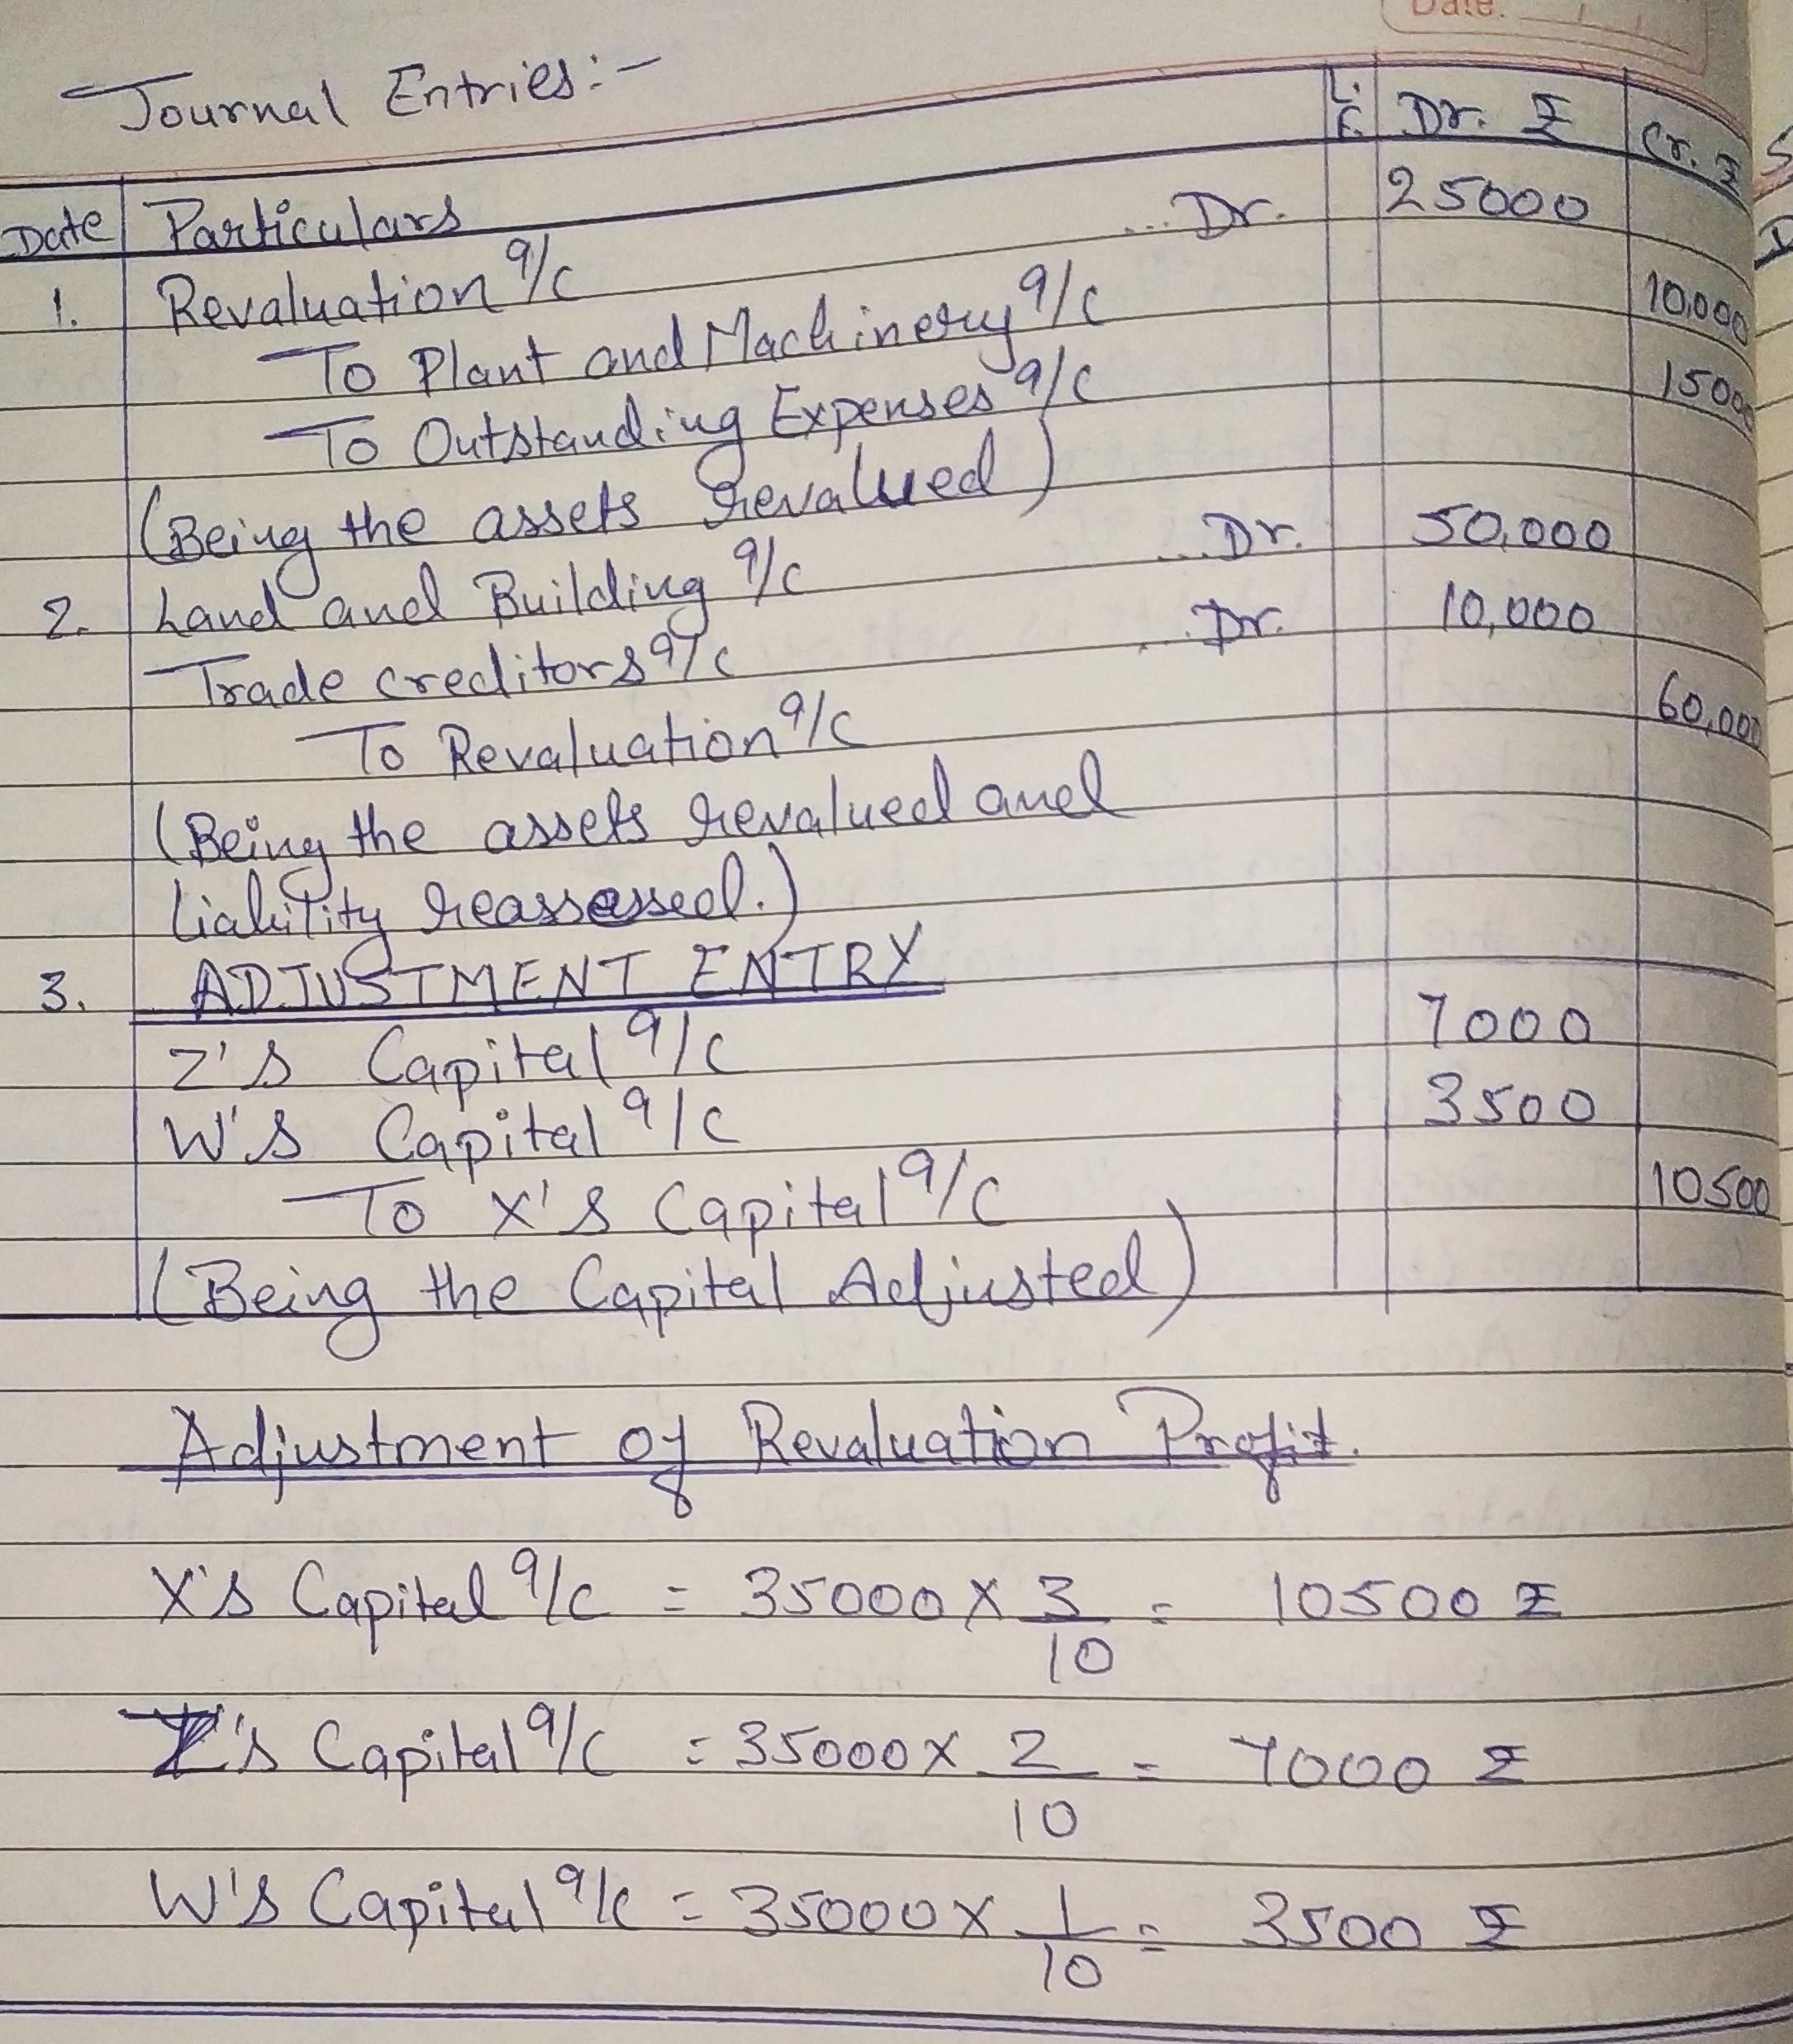 Date:
Journal Entries:-
Date Particulars L.F. Dr. ₹ Cr. ₹
1. Revaluation a/c ... Dr. 25000
To Plant and Machinery a/c 10,000
To Outstanding Expenses a/c 15000
(Being the assets revalued)
2. Land and Building a/c ... Dr. 50,000
Trade creditors a/c ... Dr. 10,000
To Revaluation a/c 60,000
(Being the assets revalued and
liability reassessed.)
3. ADJUSTMENT ENTRY
Z's Capital a/c 7000
W's Capital a/c 3500
To X's Capital a/c 10500
(Being the Capital Adjusted)
Adjustment of Revaluation Profit.
X's Capital a/c = 35000 X 3/10 = 10500 ₹
Z's Capital a/c = 35000 X 2/10 = 7000 ₹
W's Capital a/c = 35000 X 1/10 = 3500 ₹